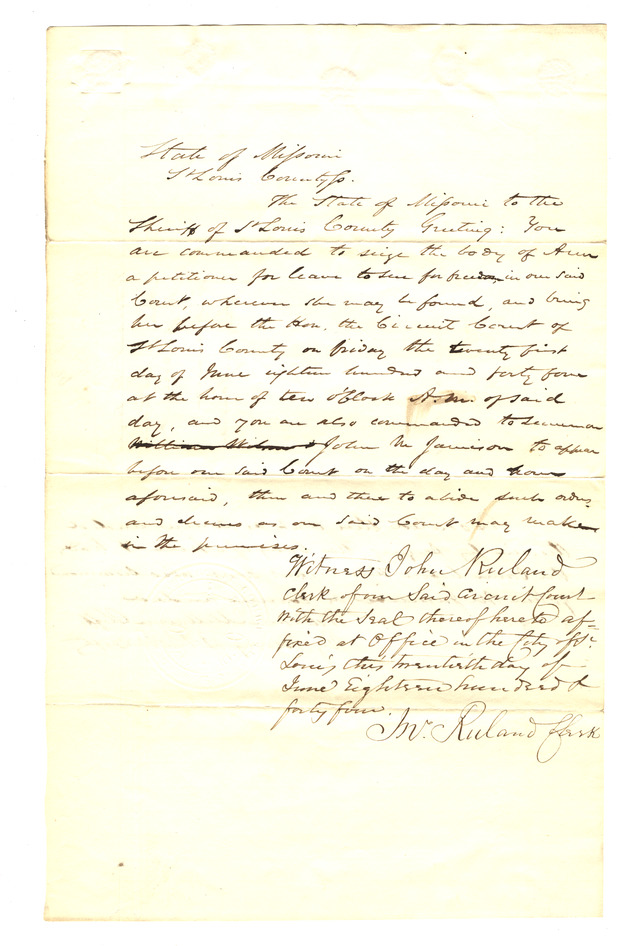 State of Missouri
St Louis County Ss.
The State of Missouri to the
Sheriff of St Louis County Greeting: You
are commanded to seize the body of Ann
a petitioner for leave to sue for freedom in our said
Court, wherever she may be found, and bring
her before the Hon. the Circuit Court of
St Louis County on friday the twenty first
day of June eighteen hundred and forty four
at the hour of ten O'Clock A.M. of said
day, and you are also commanded to summon
William Wilson & John M Jamison to appear
before our said Court on the day and hour
aforesaid, then and there to abide such orders
and decrees as our said Court may make
in the premises.
Witness John Ruland
Clerk of our Said Circuit Court
with the Seal thereof hereto af-
fixed at Office in the City of St.
Louis this twentieth day of
June Eighteen hundred &
forty four.
Jno. Ruland Clerk